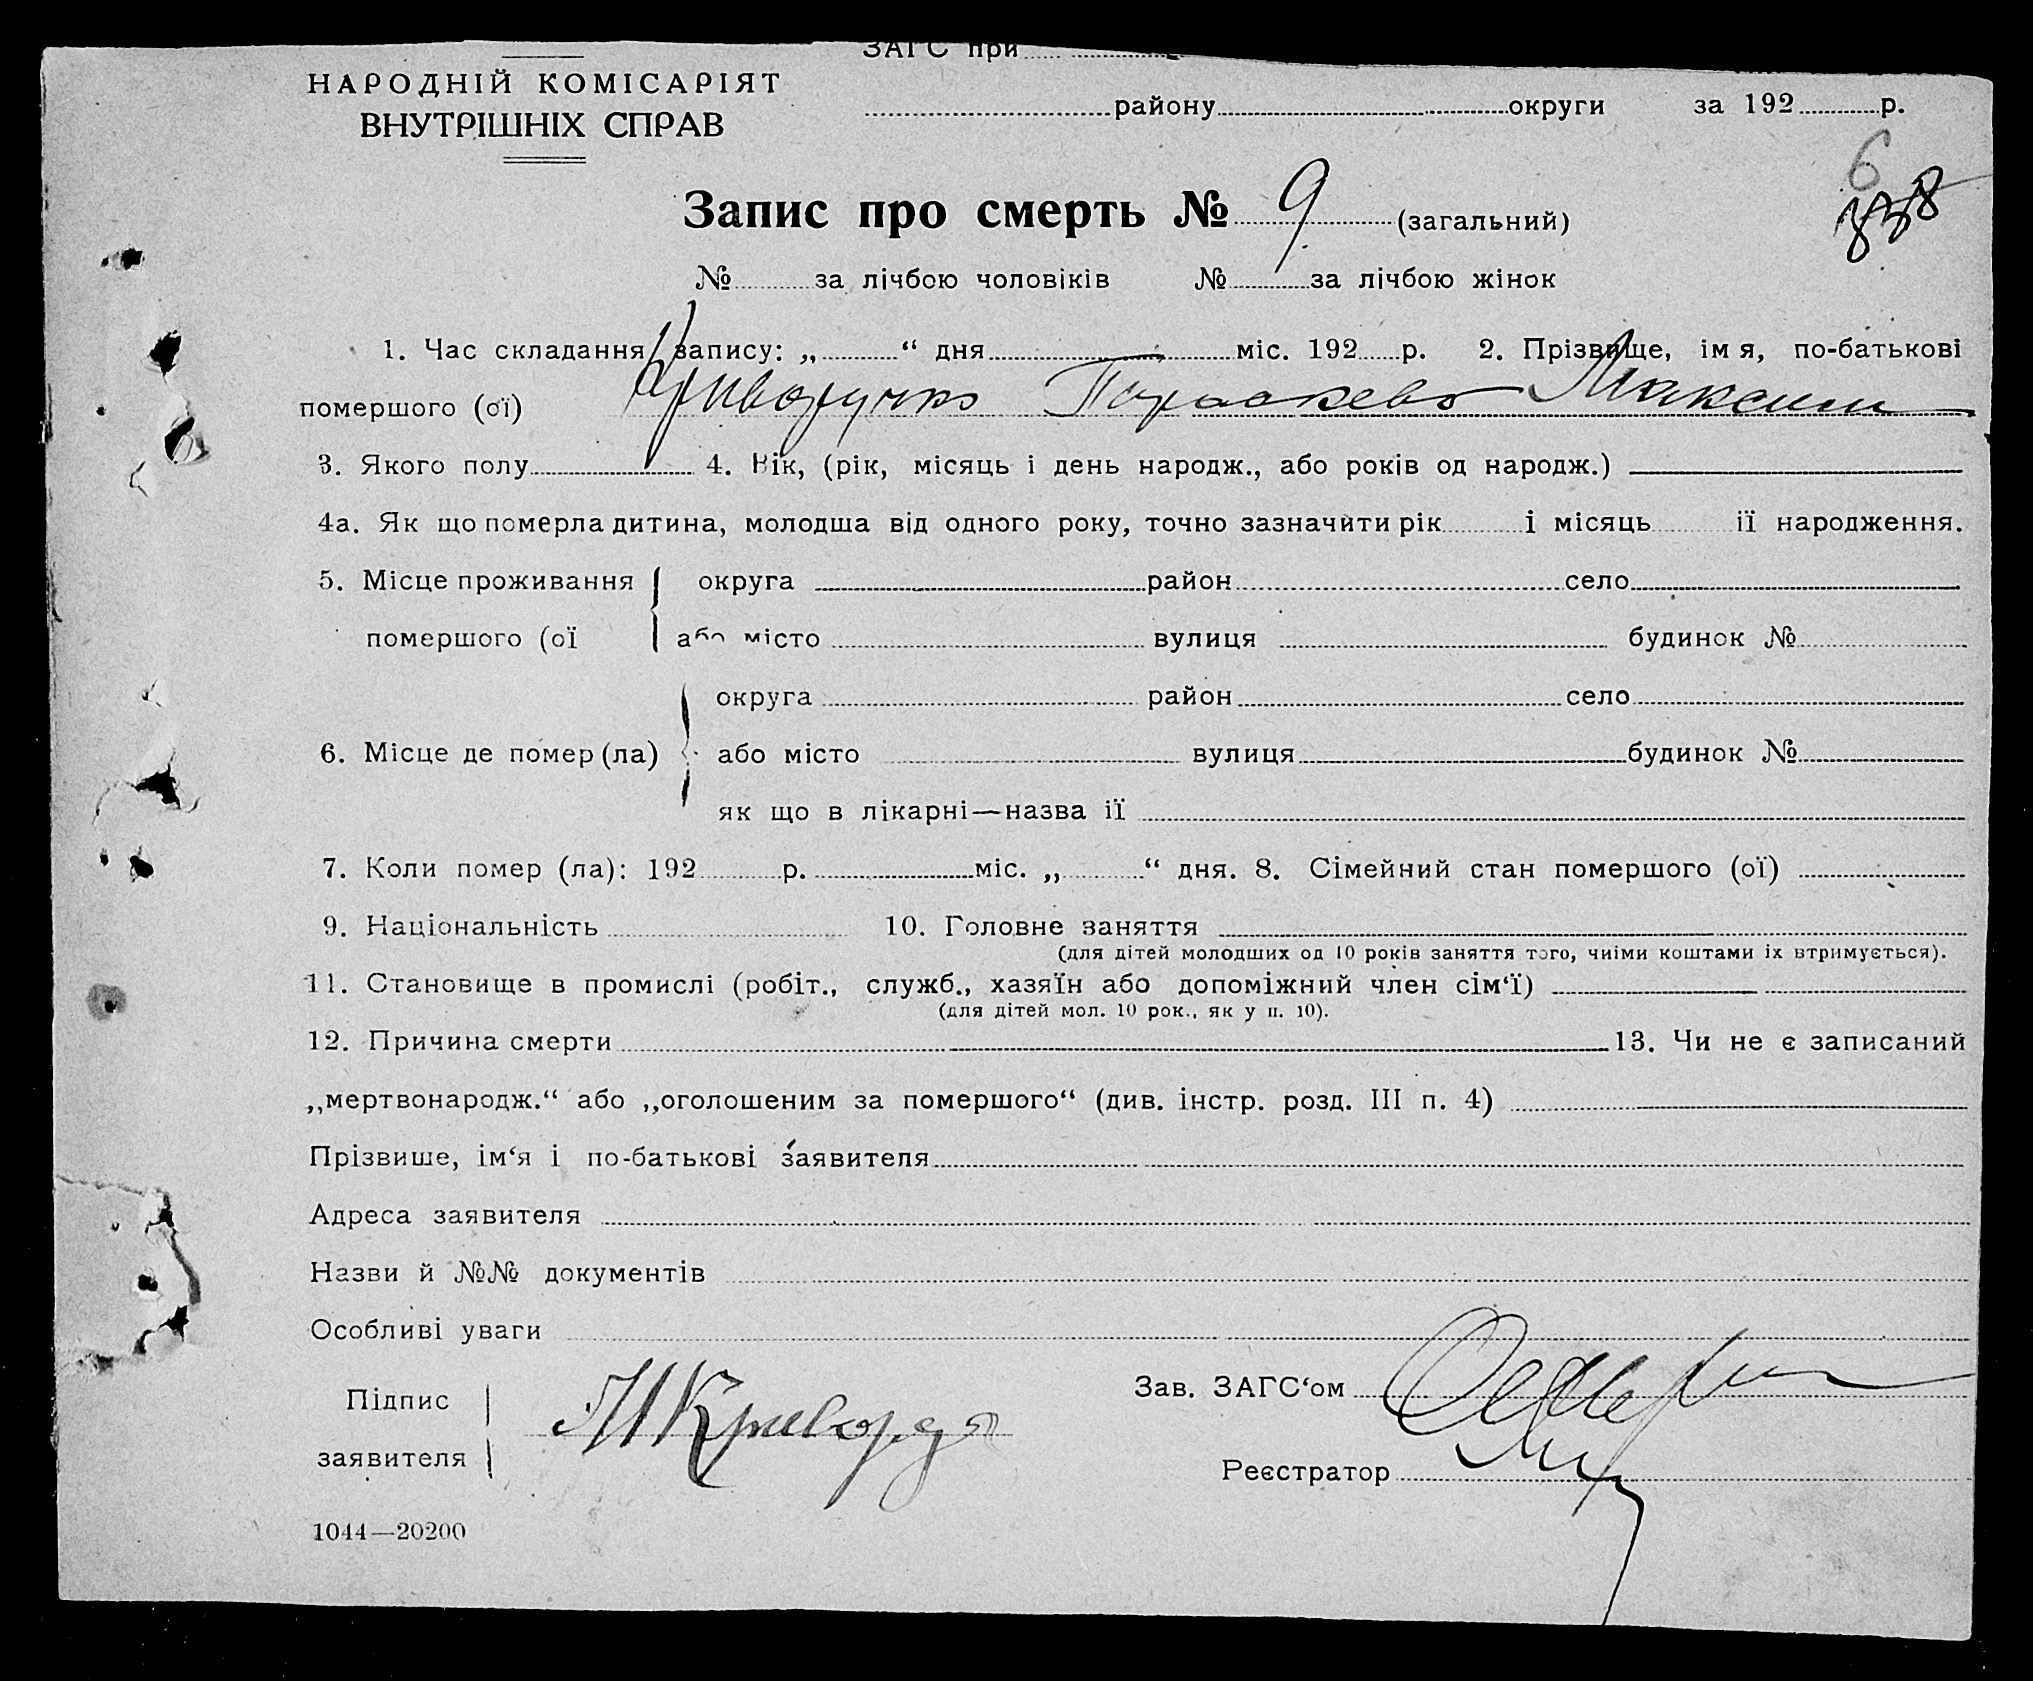 ЗАГС при
НАРОДНІЙ КОМІСАРІЯТ
ВНУТРІШНІХ СПРАВ
району округи за 192 р.
6
Запис про смерть № 9 (загальний)
№ за лічбою чоловіків № за лічбою жінок
1. Час складання запису: „ “ дня міс. 192 р. 2. Прізвище, імя, по-батькові
помершого (ої) Криворучко Параскева Максим
3. Якого полу 4. Вік, (рік, місяць і день народж., або років од народж.)
4а. Як що померла дитина, молодша від одного року, точно зазначити рік і місяць її народження.
5. Місце проживання округа район село
помершого (ої або місто вулиця будинок №
округа район село
6. Місце де помер (ла) або місто вулиця будинок №
як що в лікарні—назва її
7. Коли помер (ла): 192 р. міс. „ “ дня. 8. Сімейний стан помершого (ої)
9. Національність 10. Головне заняття
(для дітей молодших од 10 років заняття того, чиїми коштами їх втримується).
11. Становище в промислі (робіт., служб., хазяїн або допоміжний член сім‘ї)
(для дітей мол. 10 рок., як у п. 10).
12. Причина смерти 13. Чи не є записаний
„мертвонародж.“ або „оголошеним за помершого“ (див. інстр. розд. III п. 4)
Прізвише, ім‘я і по-батькові заявителя
Адреса заявителя
Назви й №№ документів
Особливі уваги
Підпис
заявителя
Зав. ЗАГС‘ом
Реєстратор
1044—20200